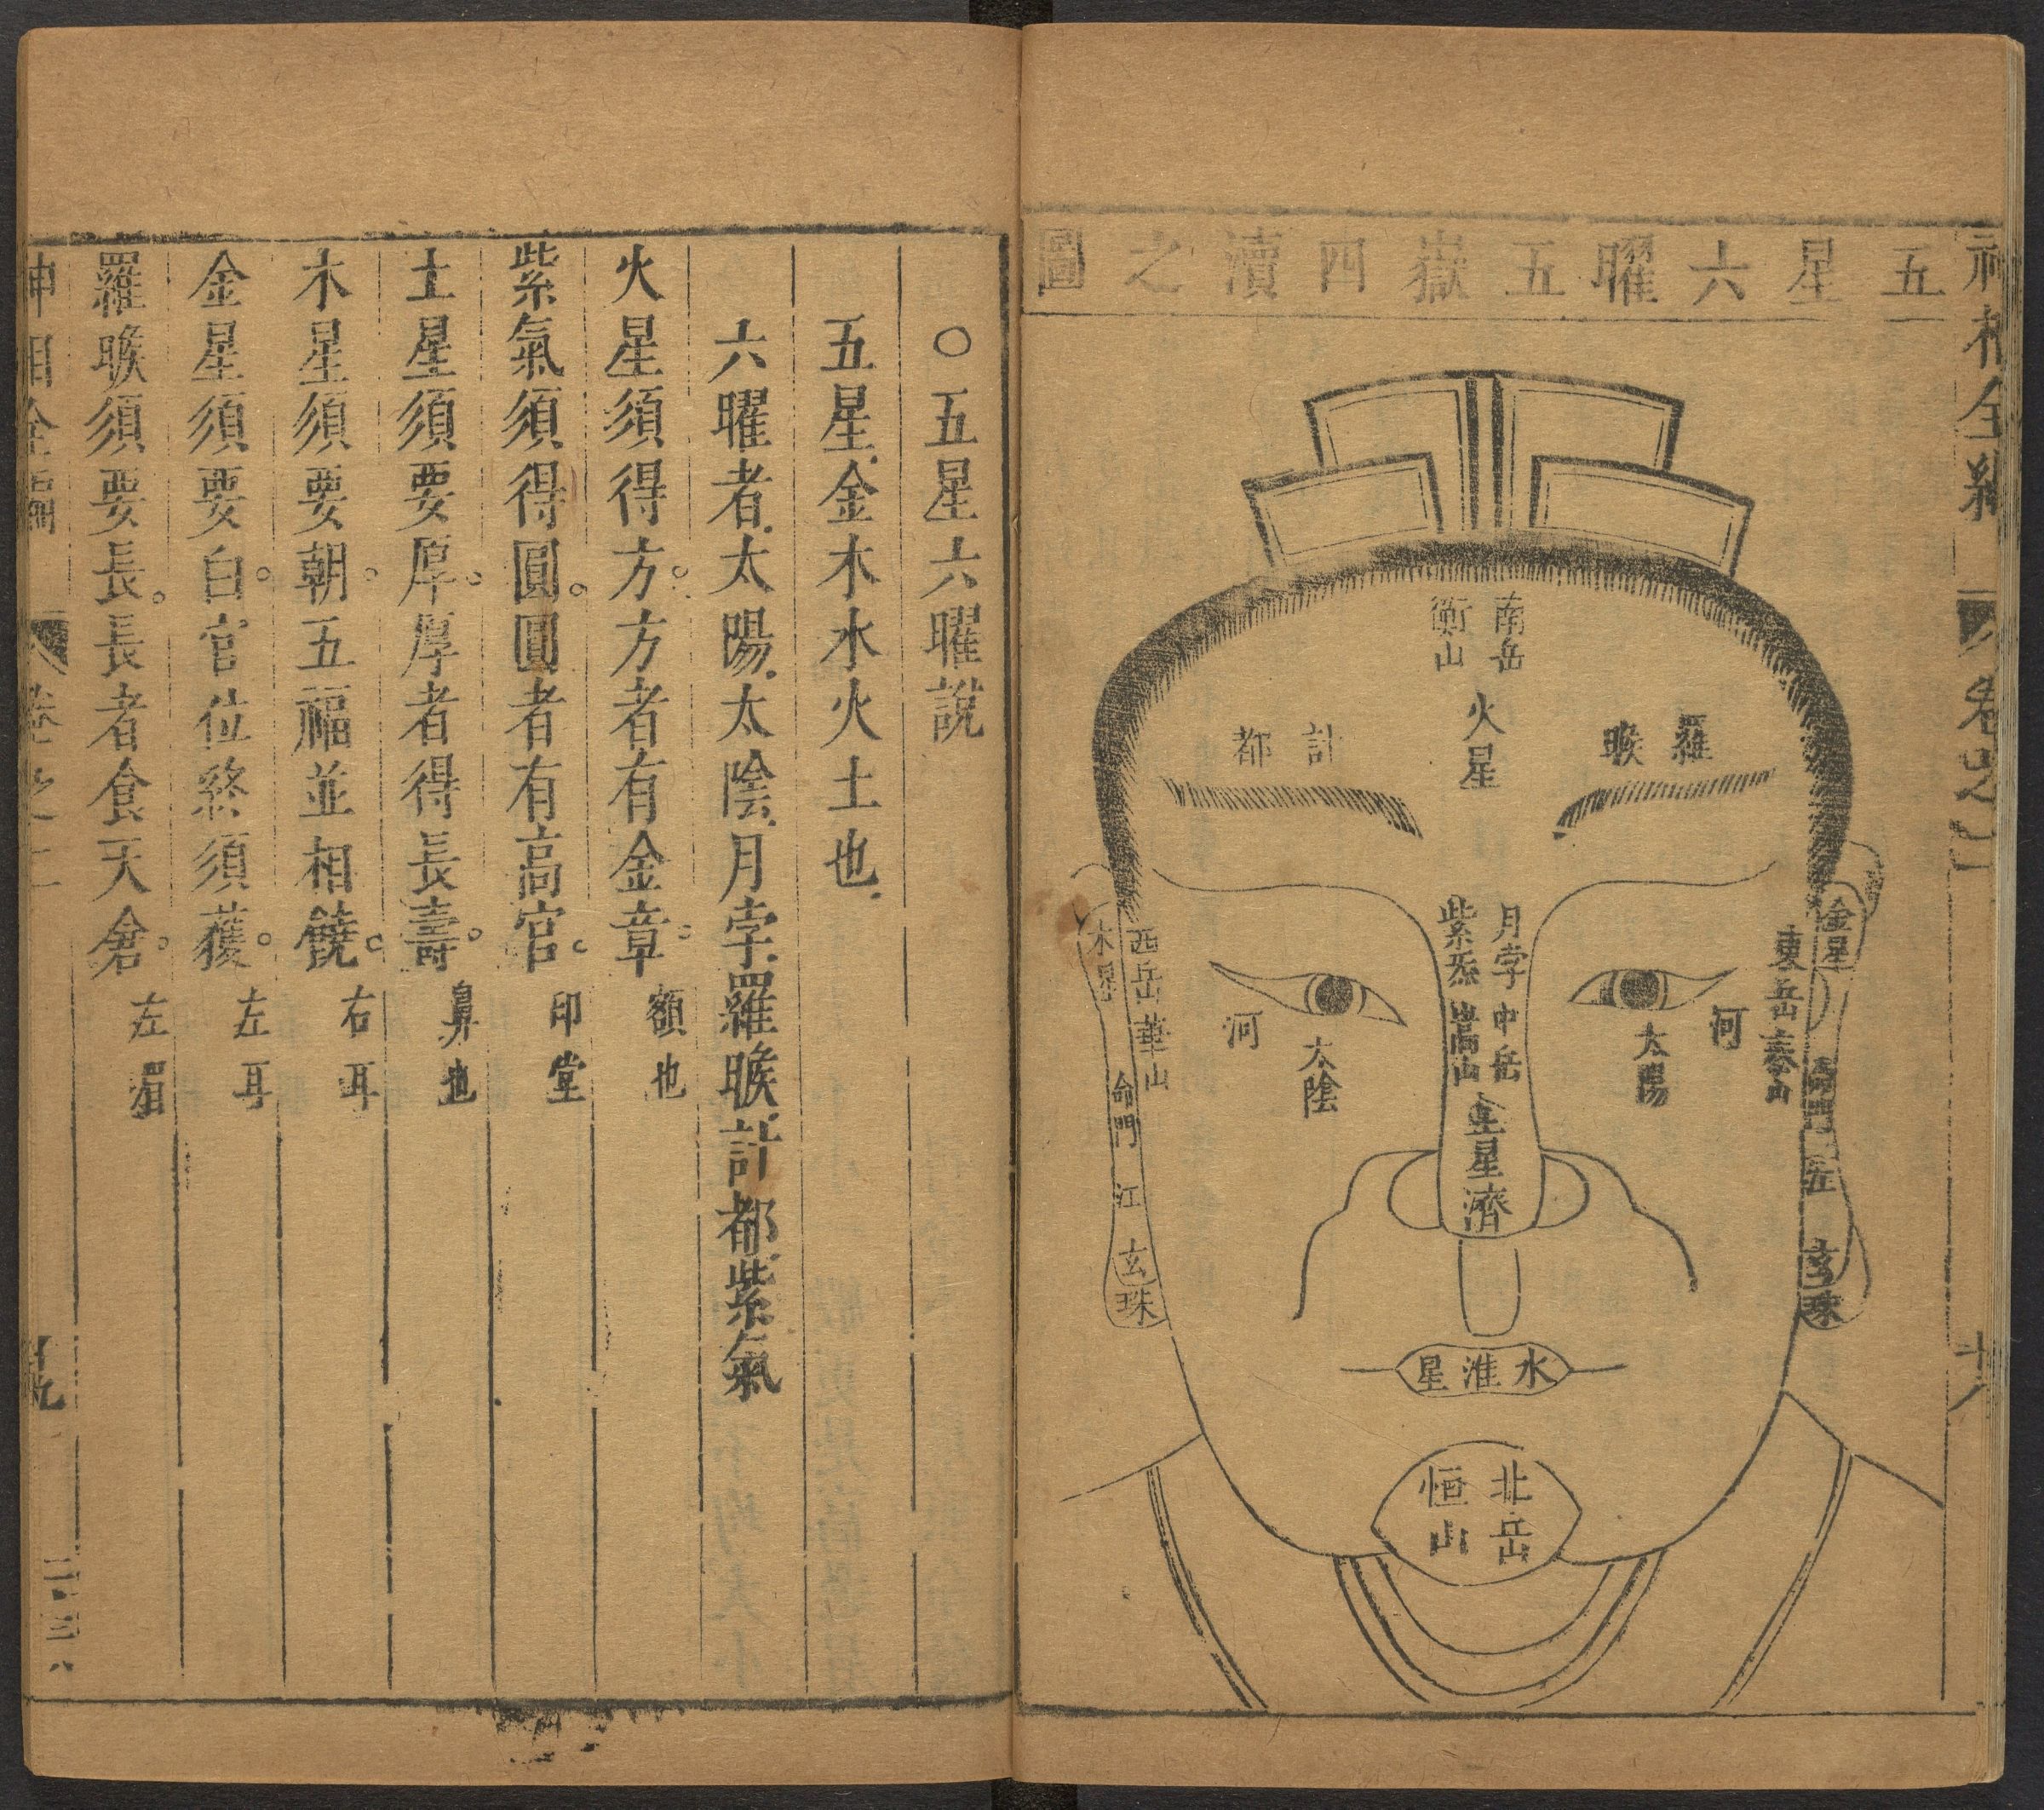 五星六曜五嶽四瀆之圖
南岳
衡山
火星
羅睺
計都
月孛
紫炁
中岳
嵩山
土星
濟
金星
東岳泰山
河
太陽
命門
玄珠
木星
西岳華山
河
太陰
命門
江
玄珠
水淮星
北岳
恒山
神相全編
卷之二
十八
○五星六曜說
五星金木水火土也
六曜者太陽太陰月孛羅睺計都紫氣
火星須得方。方者有金章。額也
紫氣須得圓。圓者有高官。印堂
土星須要厚。厚者得長壽。鼻也
木星須要朝。五福並相饒。右耳
金星須要白。官位終須獲。左耳
羅睺須要長。長者食天倉。左眉
神相全編
卷之二